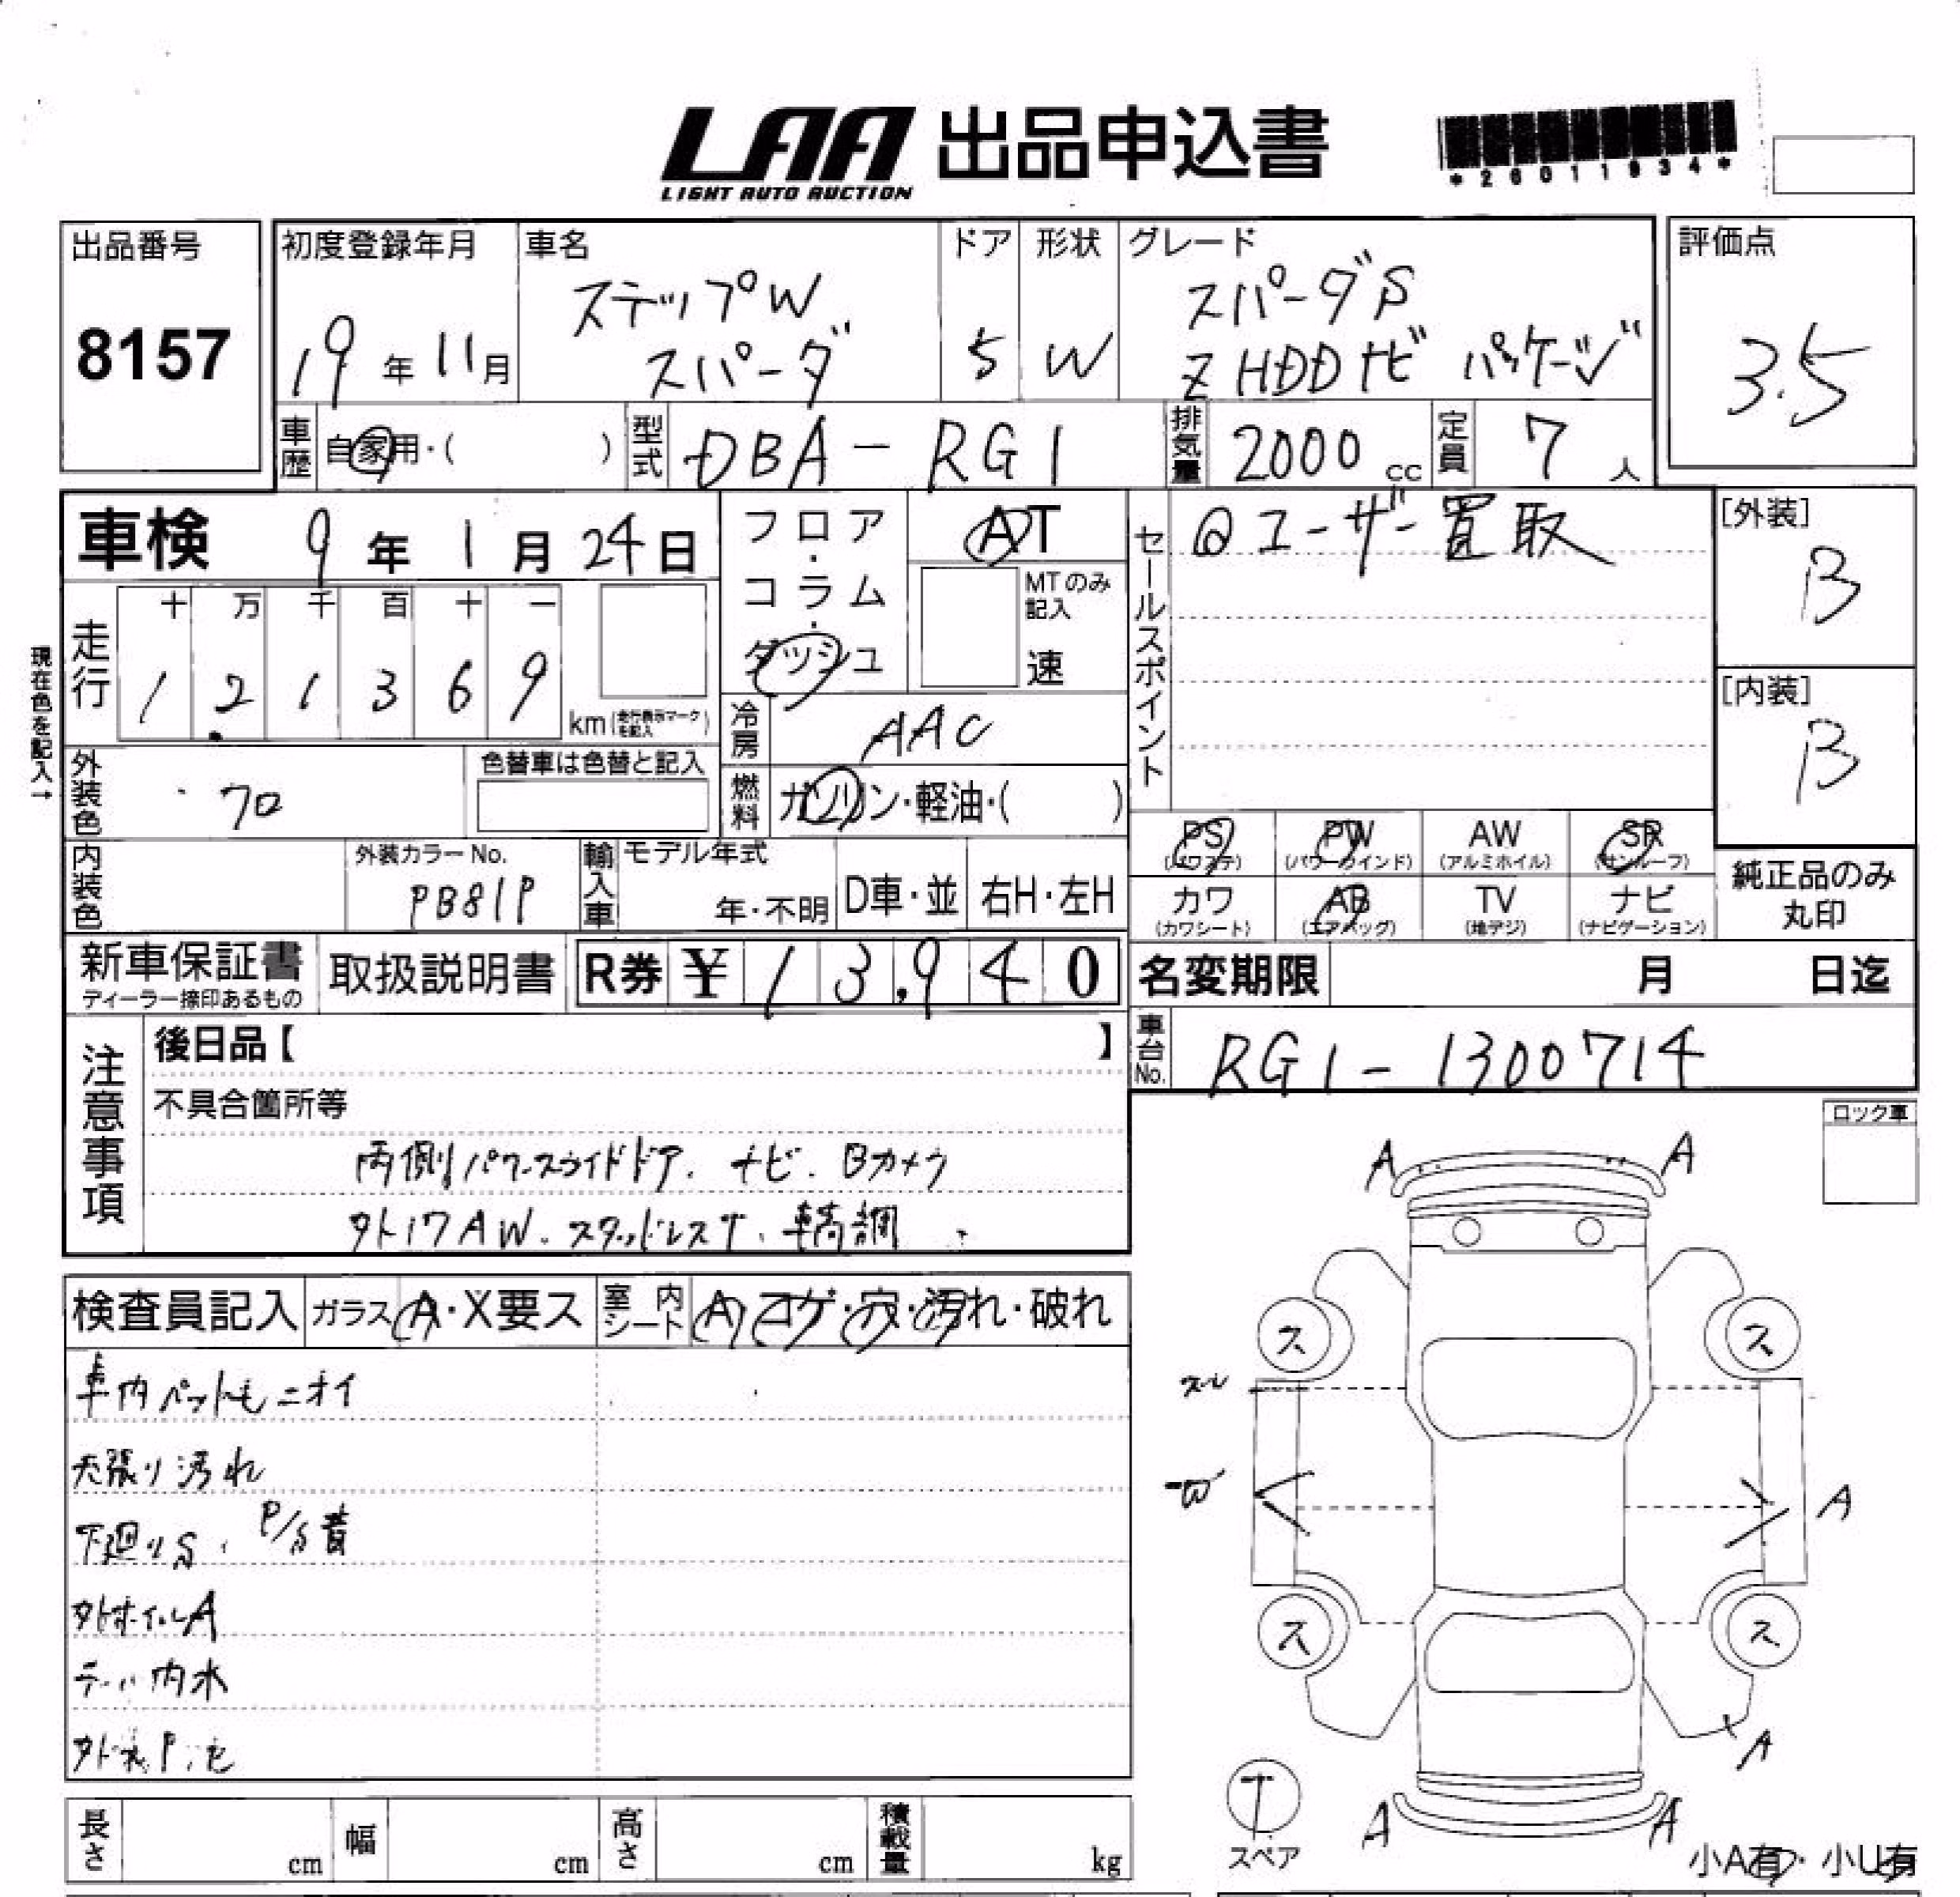 LAA 出品申込書
LIGHT AUTO AUCTION
*26011934*
出品番号
8157
初度登録年月
19年11月
車名
ステップW
スパーダ
ドア
5
形状
W
グレード
スパーダS
Z HDDナビ パッケージ
評価点
3.5
車歴
自家用・( )
型式
DBA-RG1
排気量
2000cc
定員
7人
車検 9年1月24日
フロア・コラム・ダッシュ
AT
MTのみ記入
速
セールスポイント
@ユーザー買取
[外装]
B
[内装]
B
現在色を記入→
走行
十 万 千 百 十 一
1 2 1 3 6 9
km(走行表示マークを記入)
冷房
AAC
外装色
70
色替車は色替と記入
燃料
ガソリン・軽油・( )
内装色
外装カラーNo.
PB81P
輸入車
モデル年式
年・不明
D車・並
右H・左H
PS (パワステ)
PW (パワーウインド)
AW (アルミホイル)
SR (サンルーフ)
カワ (カワシート)
AB (エアバッグ)
TV (地デジ)
ナビ (ナビゲーション)
純正品のみ丸印
新車保証書
ディーラー捺印あるもの
取扱説明書
R券 ¥13,940
名変期限 月 日迄
車台No.
RG1-1300714
注意事項
後日品【 】
不具合箇所等
両側パワースライドドア. ナビ. Bカメラ
外17AW. スタッドレスT. 車高調
ロック車
検査員記入
ガラス A・X要ス
室内シート A コゲ・穴・汚れ・破れ
車内ペット毛ニオイ
天張り汚れ
下廻りS. P/S音
外ホイルA
テール内水
A A
ス ス
スレ
A
ス ス
A
A A
T
スペア
小A有・小U有
長さ cm
幅 cm
高さ cm
積載量 kg